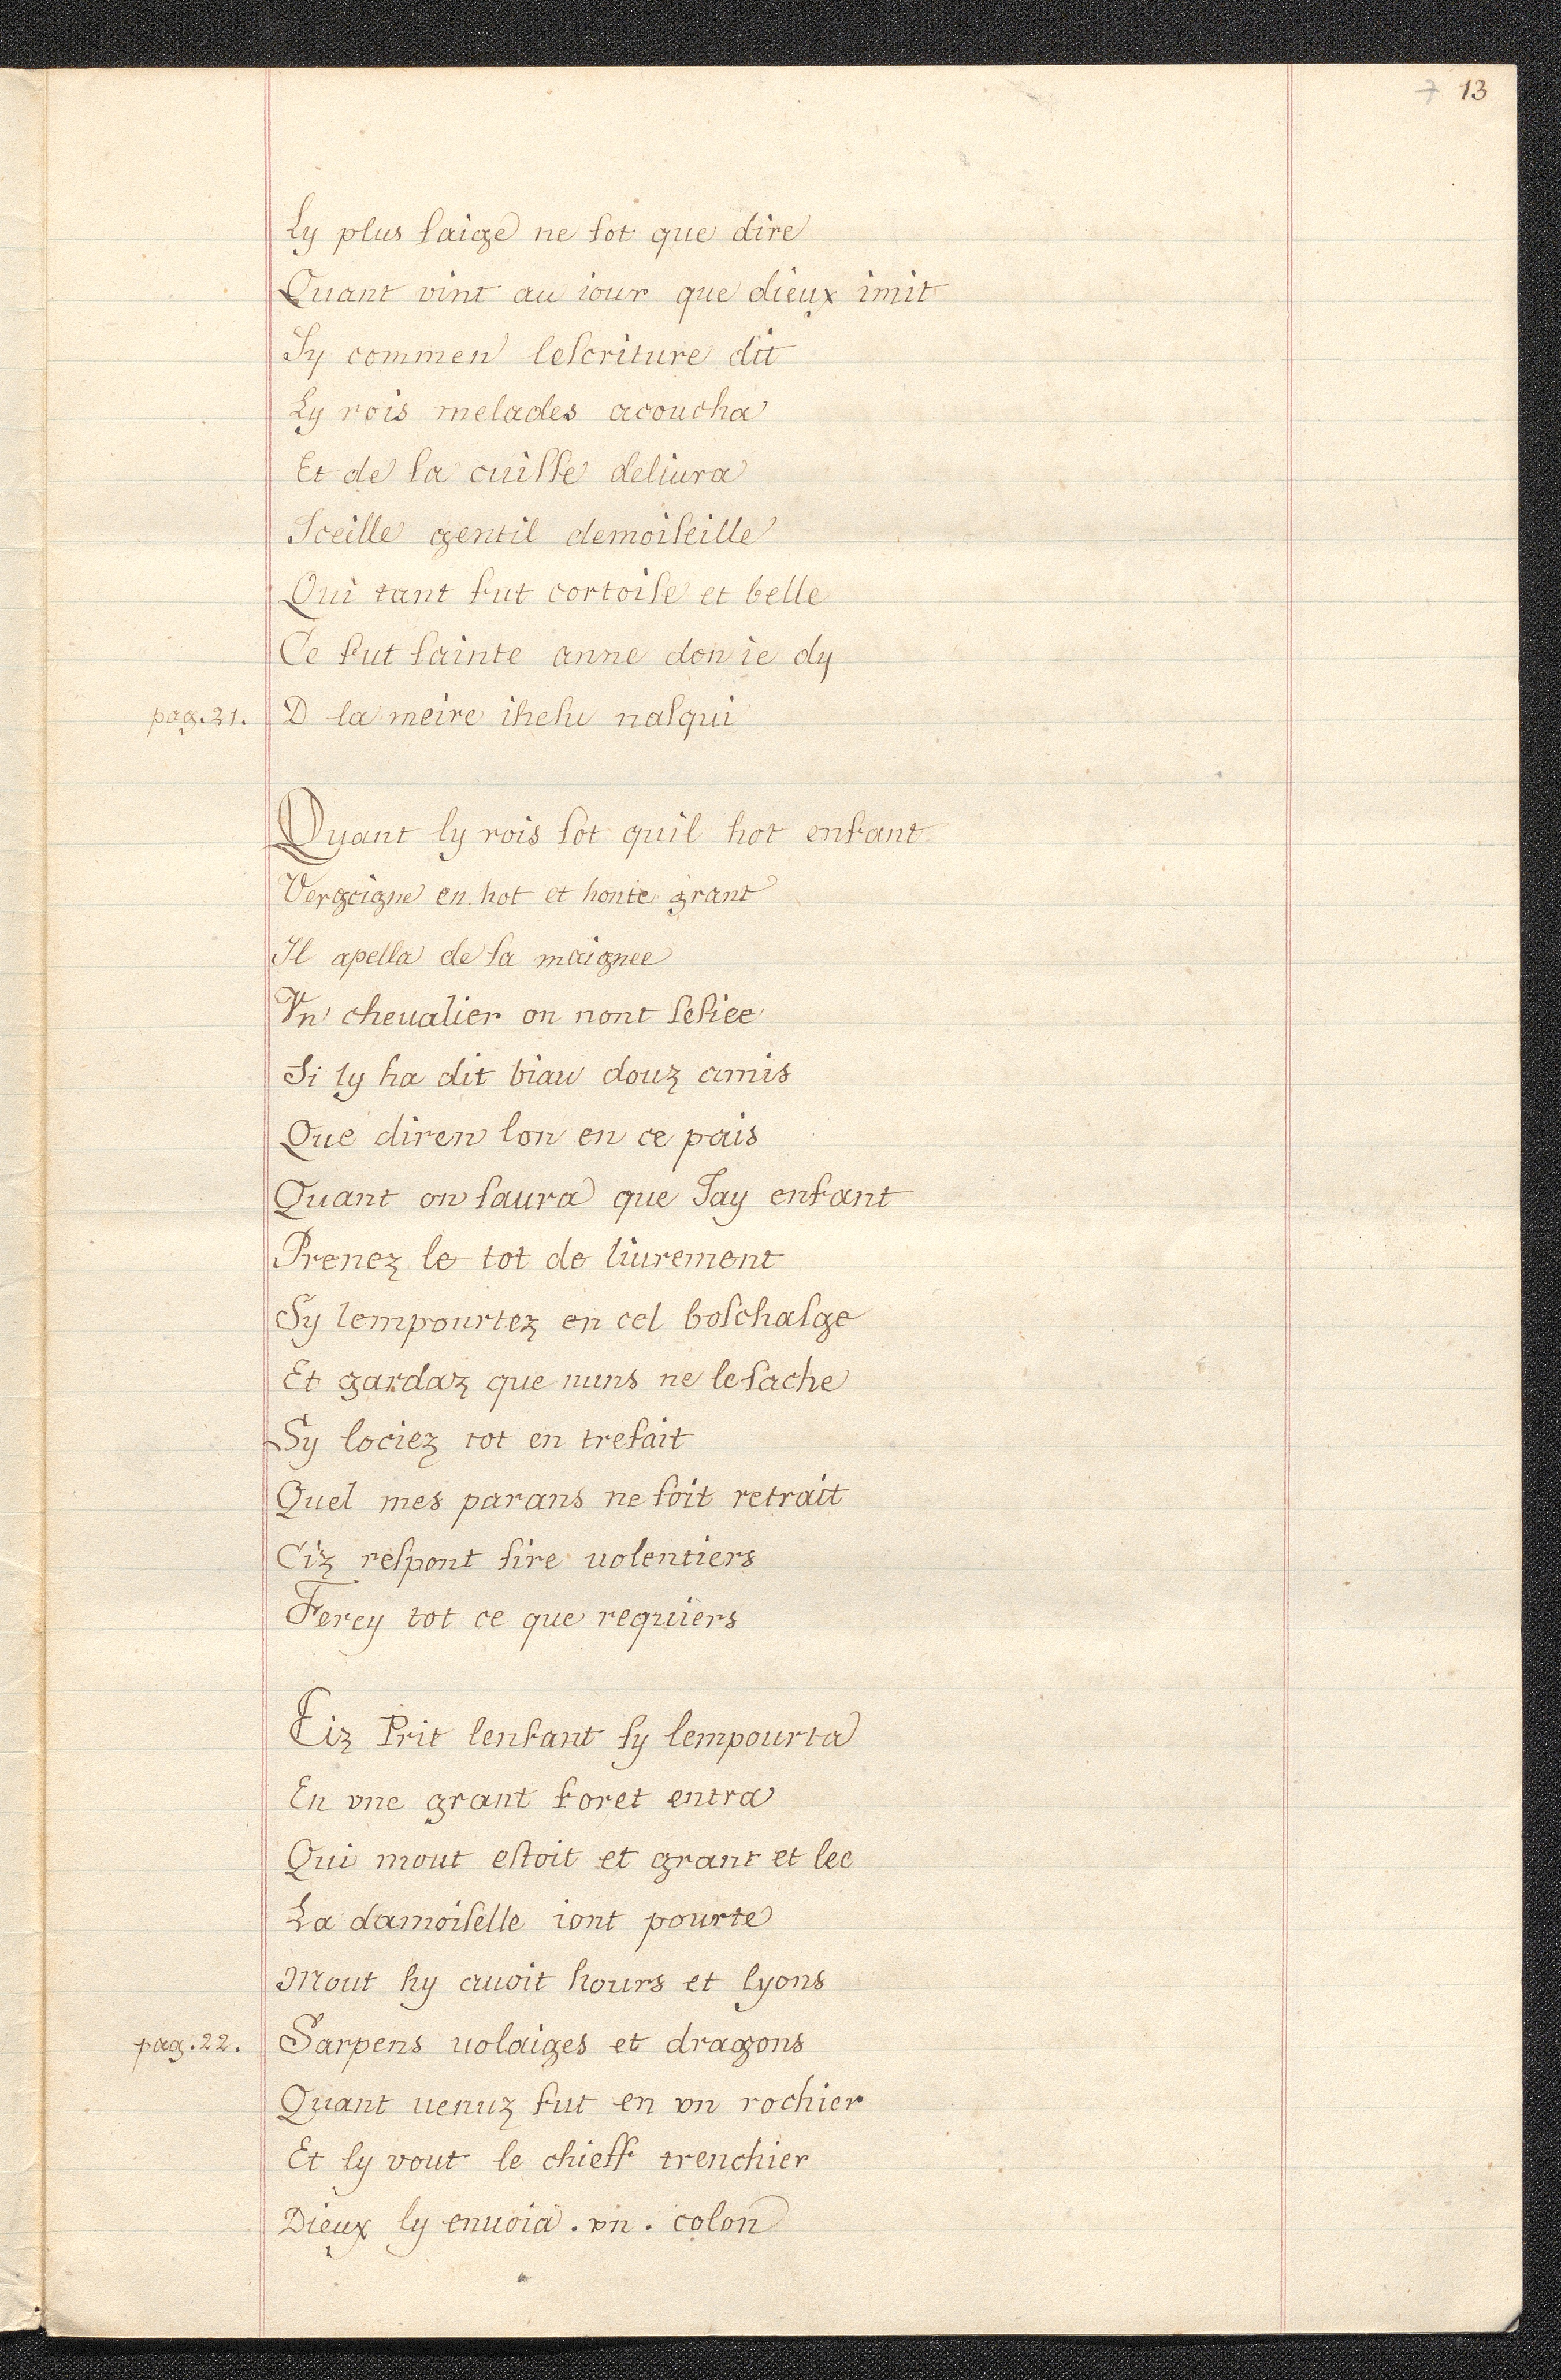 7 13
Ly plus ſaige ne ſot que dire
Quant vint au iour que dieux imit
Sy commen leſcriture dit
Ly rois melades acoucha
Et de ſa cuiſſe deliura
Iceille gentil demoiſeille
Qui tant fut cortoiſe et belle
Ce fut ſainte anne don ie dy
pag. 21. D la meire iheſu naſqui
Quant ly rois ſot quil hot enfant
Vergoigne en hot et honte grant
Il apella de ſa maignee
Vn cheualier on nont
Si ly ha dit biau douz amis
Que diren lon en ce pais
Quant on ſaura que Jay enfant
Prenez le tot de liurement
Sy lempourtez en cel boſchaſge
Et gardaz que nuns ne le ſache
Sy lociez tot en trefait
Quel mes parans ne ſoit retrait
Ciz reſpont ſire uolentiers
Ferey tot ce que requiers
Ciz Prit lenfant ſy lempourta
En vne grant foret entra
Qui mout eſtoit et grant et lee
La damoiſelle iont pourte
Mout hy auoit hours et lyons
pag. 22. Sarpens uolaiges et dragons
Quant uenuz fut en vn rochier
Et ly vout le chieff trenchier
Dieux ly enuoia . vn . colon